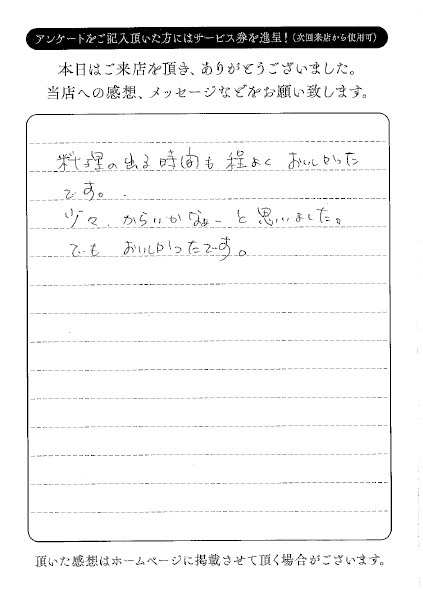 アンケートをご記入頂いた方にはサービス券を進呈！(次回来店から使用可)
本日はご来店を頂き、ありがとうございました。
当店への感想、メッセージなどをお願い致します。
料理の出る時間も程よく おいしかった
です。
少々、からいかなぁーと思いました。
でも おいしかったです。
頂いた感想はホームページに掲載させて頂く場合がございます。